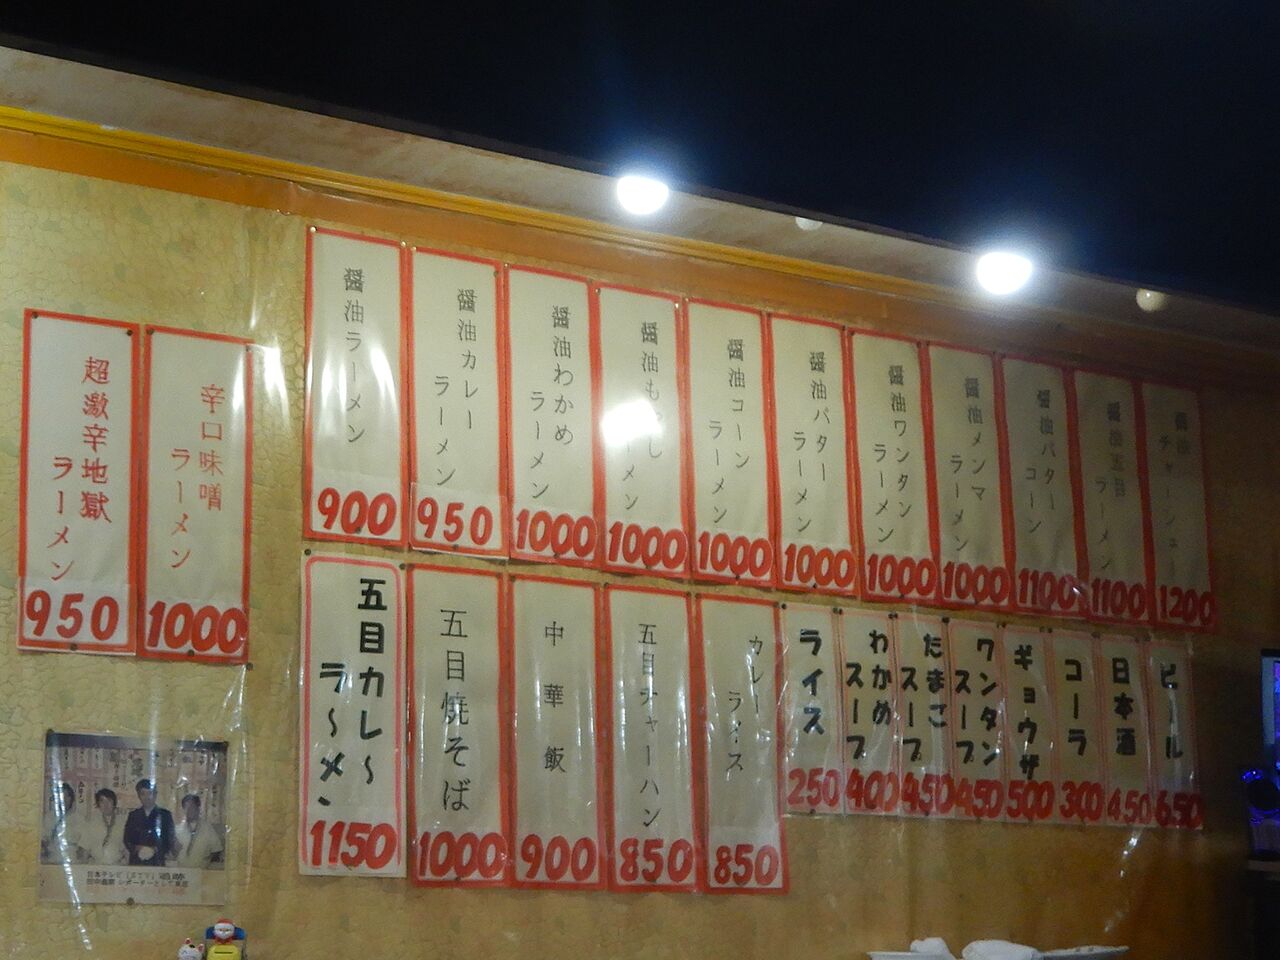 超激辛地獄
ラーメン
950
辛口味噌
ラーメン
1000
醤油ラーメン
900
醤油カレー
ラーメン
950
醤油わかめ
ラーメン
1000
醤油もやし
ラーメン
1000
醤油コーン
ラーメン
1000
醤油バター
ラーメン
1000
醤油ワンタン
ラーメン
1000
醤油メンマ
ラーメン
1000
醤油バター
コーン
1100
醤油五目
ラーメン
1100
醤油
チャーシュー
1200
五目カレ〜
ラ〜メン
1150
五目焼そば
1000
中華飯
900
五目チャーハン
850
カレー
ライス
850
ライス
250
わかめ
スープ
400
たまご
スープ
450
ワンタン
スープ
450
ギョウザ
500
コーラ
300
日本酒
450
ビール
650
日本テレビ(STV)追跡